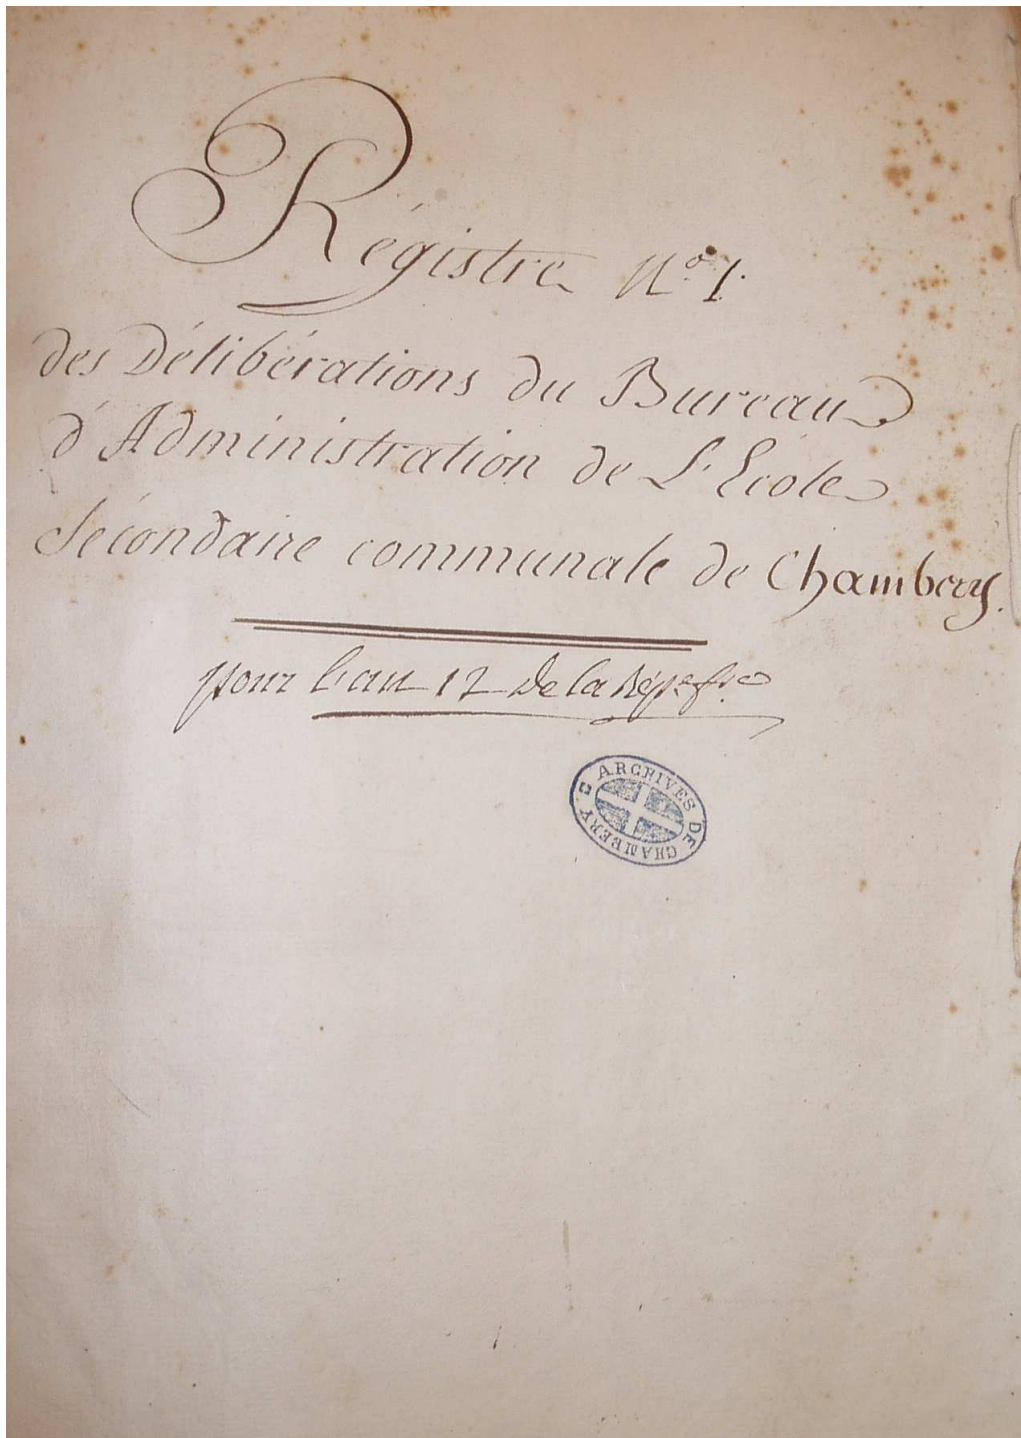 Régistre N.º 1.
des Délibérations du Bureau
d'Administration de L'Ecole
Sécondaire communale de Chambery.
pour l'an 12 de la Rép.e fr.e
ARCHIVES DE CHAMBERY